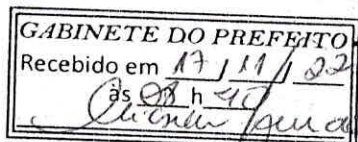 GABINETE DO PREFEITO
Recebido em 17 / 11 / 22
às h 40